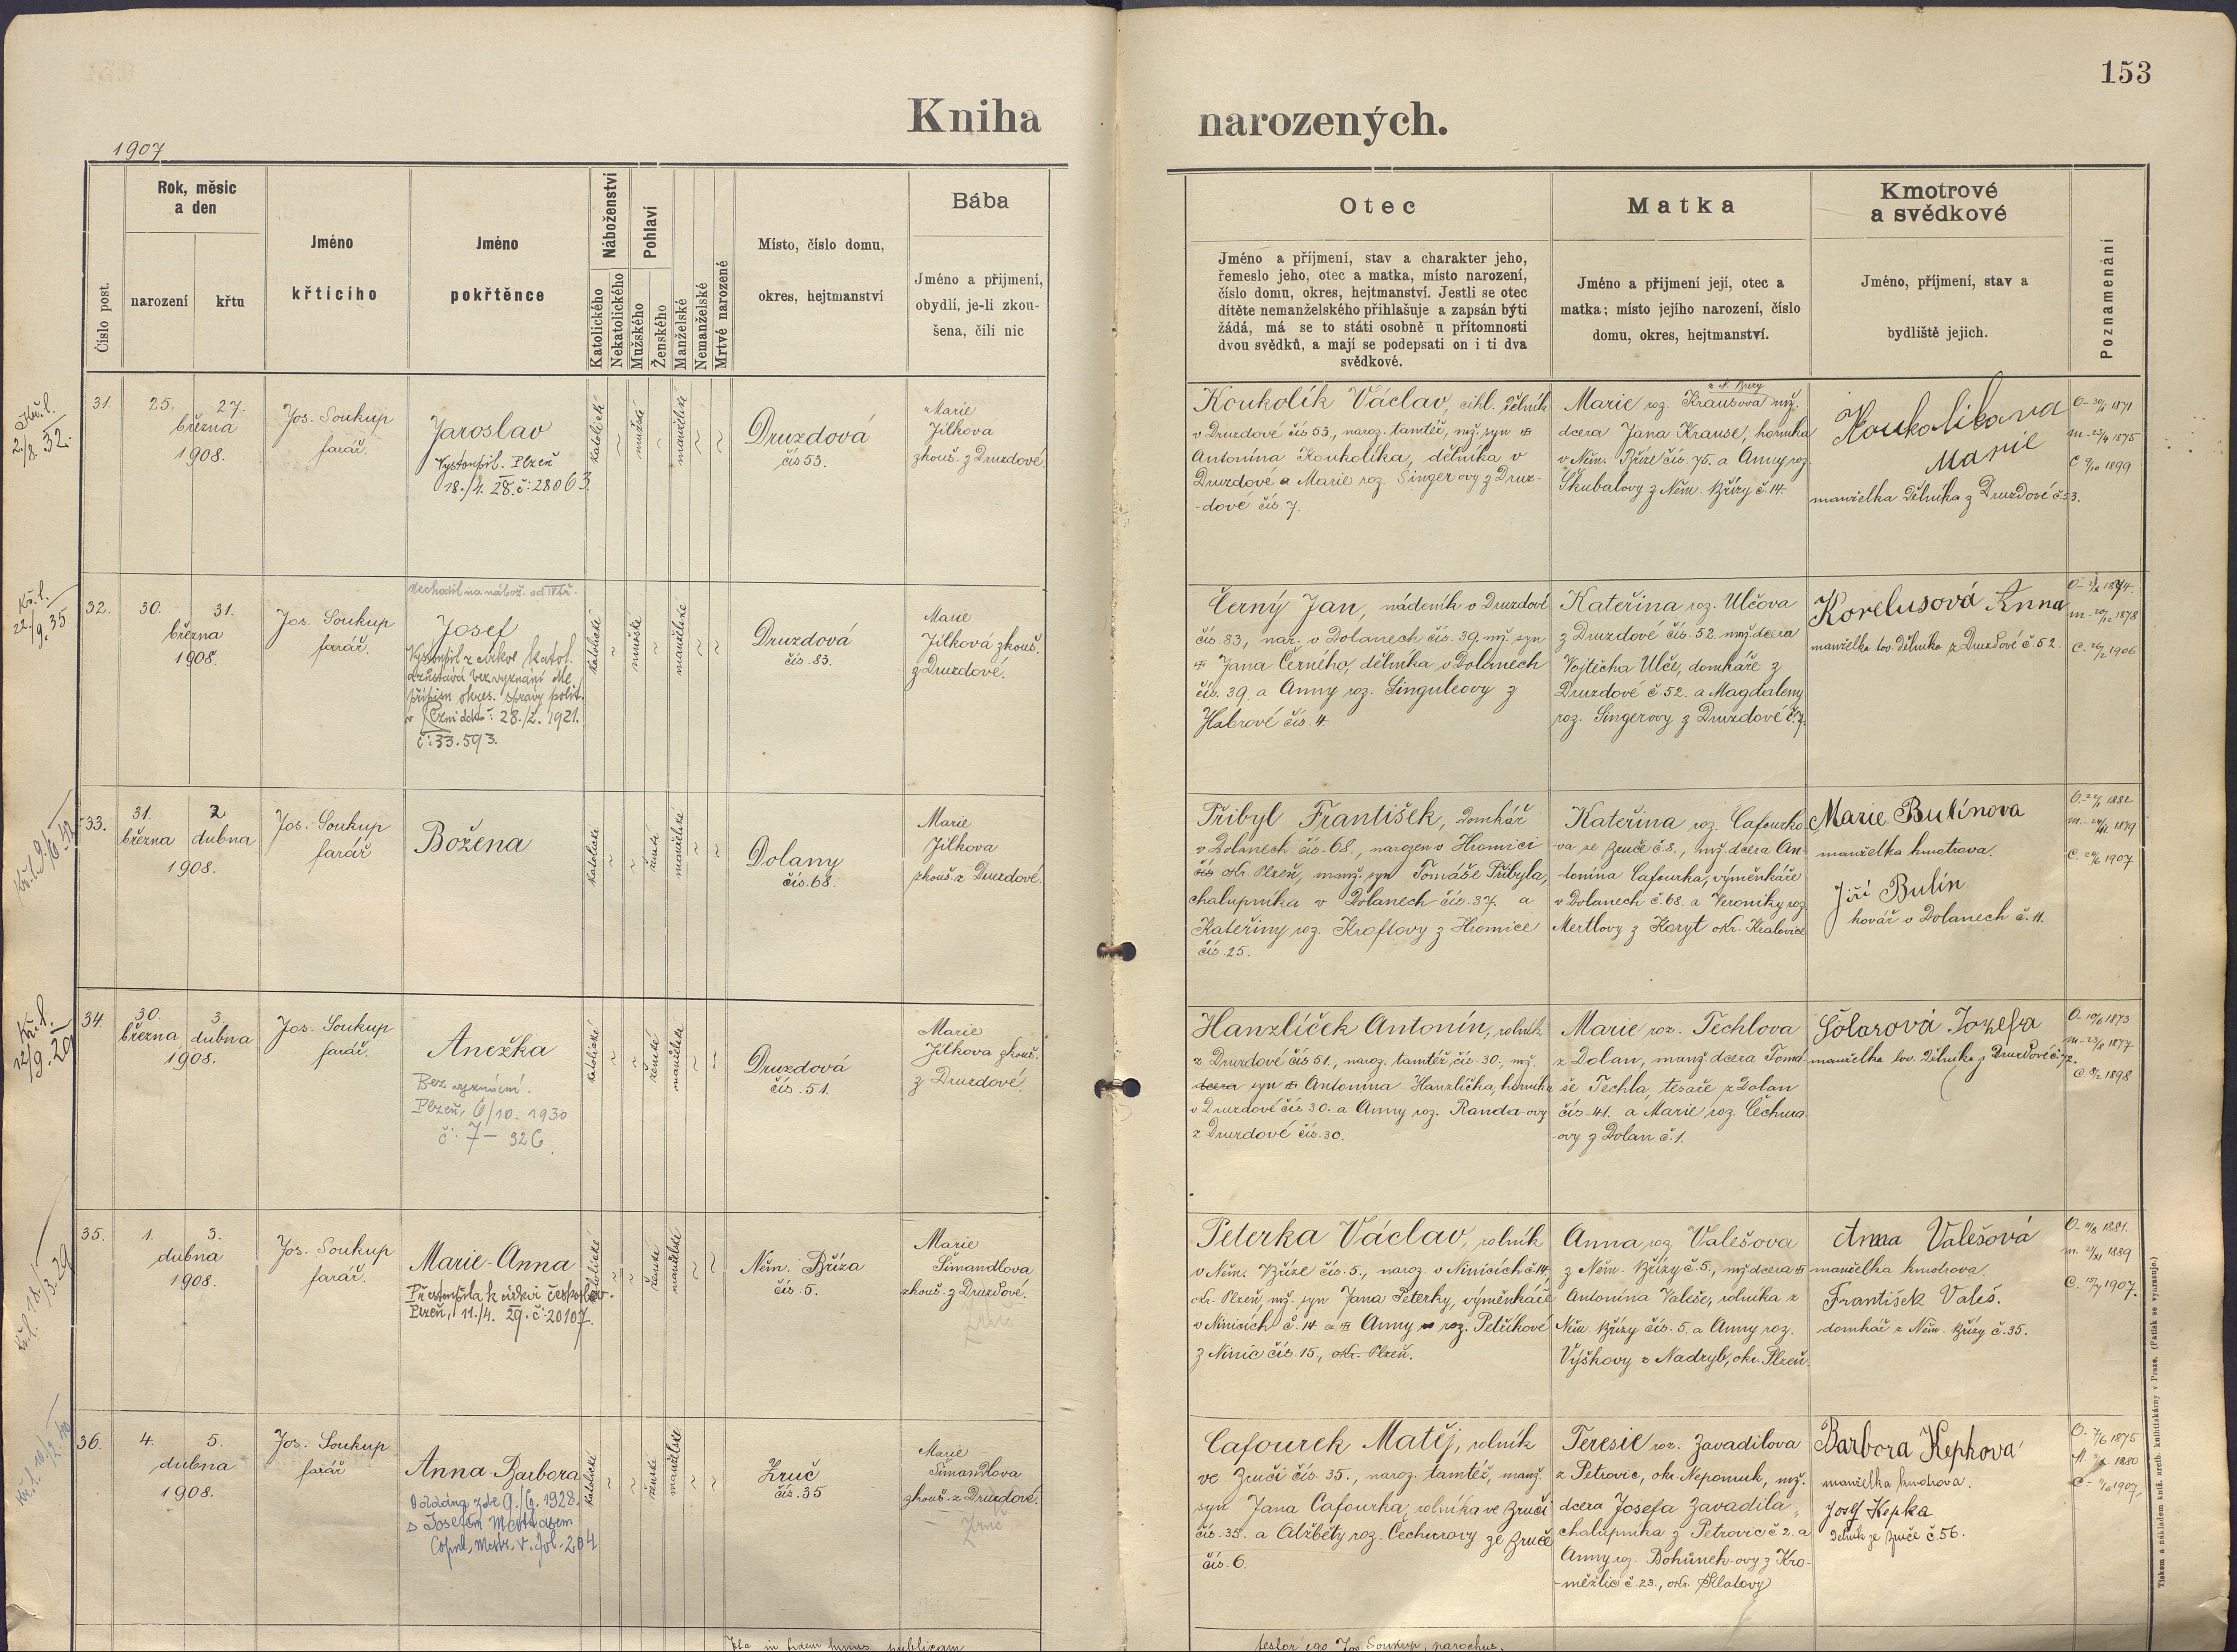 153
Kniha narozených.
1907
Číslo post.
Rok, měsíc
a den
narození
křtu
Jméno
křtícího
Jméno
pokřtěnce
Náboženství
Katolického
Nekatolického
Pohlaví
Mužského
Ženského
Manželské
Nemanželské
Mrtvé narozené
Místo, číslo domu,
okres, hejtmanství
Bába
Jméno a přijmení,
obydlí, je-li zkou-
šena, čili nic
Otec
Jméno a příjmení, stav a charakter jeho,
řemeslo jeho, otec a matka, místo narození,
číslo domu, okres, hejtmanství. Jestli se otec
dítěte nemanželského přihlašuje a zapsán býti
žádá, má se to státi osobně u přítomnosti
dvou svědků, a mají se podepsati on i ti dva
svědkové.
Matka
Jméno a přijmení její, otec a
matka; místo jejího narození, číslo
domu, okres, hejtmanství.
Kmotrové
a svědkové
Jméno, příjmení, stav a
bydliště jejich.
Poznamenání
Kř. l.
2./8. 32.
31.
25. 27.
března
1908.
Jos. Soukup
farář.
Jaroslav
Vystoupil. Plzeň
18./4. 28. č: 28063.
katolické
mužské
manželské
Druzdová
čís 53.
Marie
Jílkova
zkouš. z Druzdové.
Koukolík Václav, cihl. dělník
v Druzdové čís 53., naroz. tamtéž, mž. syn
Antonína Koukolíka, dělníka v
Druzdové a Marie roz. Singer-ovy z Druz-
-dové čís 7.
Marie roz. Krausova mž.
dcera Jana Krause, horníka
v Něm. Bříze čís. 75. a Anny roz.
Škubalovy z Něm. Břízy č. 14.
Koukolikova
Marie
manželka dělníka z Druzdové č. 53.
1871
1875
1899
Kř. l.
22./9. 35
32.
30. 31.
března
1908.
Jos. Soukup
farář.
Josef
Vystoupil z církve katol.
a zůstává bez vyznání dle
přípisu okres. správy polit.
28./2. 1921.
č: 33.593.
katolické
mužské
manželské
Druzdová
čís. 83.
Marie
Jílková zkouš.
z Druzdové.
Černý Jan, nádeník v Druzdové
čís. 83., nar. v Dolanech čís. 39. mž. syn
Jana Černého, dělníka v Dolanech
čís. 39. a Anny roz. Singuleovy z
Habrové čís. 4.
Kateřina roz. Ulčova
z Druzdové čís. 52. mž. dcera
Vojtěcha Ulče, domkáře z
Druzdové č 52. a Magdaleny
roz. Singerovy z Druzdové č. 7.
Korelusová Anna
manželka tov. dělníka z Druzdové č. 52.
1878
1906
33.
31. 2.
března dubna
1908.
Jos. Soukup
farář
Božena
katolické
ženské
manželské
Dolany
čís. 68.
Marie
Jílkova
zkouš. z Druzdové.
Přibyl František, domkář
v Dolanech čís. 68., narozen v Hromici
okr. Plzeň, manž. syn Tomáše Přibyla,
chalupníka v Dolanech čís. 37. a
Kateřiny roz. Kroftovy z Hromice
čís. 25.
Kateřina roz. Cafourko
va ze Zruče č. 8., mž. dcera An-
-tonína Cafourka, výměnkáře
v Dolanech č. 68. a Veroniky roz.
Mertlovy z Koryt okr. Kralovice
Marie Bulínova
manželka kmotrova.
Jiří Bulín
kovář v Dolanech č. 11.
1882
1879
1907
Kř. l.
12/9. 29
34.
30. 3.
března dubna
1908.
Jos. Soukup
farář.
Anežka
Bez vyznání.
Plzeň, 6/10. 1930
č: 7 - 926.
katolické
ženské
manželské
Druzdová
čís. 51.
Marie
Jílkova zkouš.
z Druzdové.
Hanzlíček Antonín, rolník
z Druzdové čís 51., naroz. tamtéž, čís. 30., mž.
dcera syn Antonína Hanzlíčka, horníka
v Druzdové čís 30. a Anny roz. Randa-ovy
z Druzdové čís. 30.
Marie roz. Techlova
z Dolan, manž. dcera Tomá-
še Techla, tesaře z Dolan
čís. 41. a Marie roz. Čechura-
-ovy z Dolan č. 1.
Šólarová Jozefa
manželka tov. dělníka z Druzdové č. 72.
1873
1877
1898
Kř. l. 18./3. 29
35.
1. 3.
dubna
1908.
Jos. Soukup
farář.
Marie-Anna
Přestoupila k církvi českoslov.
Plzeň, 11./4. 29. č: 20107.
katolické
ženské
manželské
Něm. Bříza
čís. 5.
Marie
Šimandlova
zkouš. z Druzdové.
Peterka Václav, rolník
v Něm. Bříze čís. 5., naroz. v Ninicích č. 14,
okr. Plzeň, mž. syn Jana Peterky, výměnkáře
v Ninicích č. 14 a Anny roz. Petříkové
z Ninic čís. 15., okr. Plzeň.
Anna roz. Valešova
z Něm. Břízy č. 5., mž. dcera
Antonína Valeše, rolníka z
Něm. Břízy čís. 5. a Anny roz.
Výškovy z Nadryb, okr. Plzeň.
Anna Valešová
manželka kmotrova.
František Valeš.
domkář z Něm. Břízy č. 35.
1881.
1889
1907.
36.
4. 5.
dubna
1908.
Jos. Soukup
farář
Anna-Barbora
Oddána zde 9./6. 1928.
s Josefem
204
katolické
ženské
manželské
Zruč
čís. 35
Marie
Šimandlova
zkouš. z Druzdové.
Zruč
Cafourek Matěj, rolník
ve Zruči čís. 35., naroz. tamtéž, manž.
syn Jana Cafourka, rolníka ve Zruči
čís. 35. a Alžběty roz. Čechurovy ze Zruče
čís. 6.
Teresie roz. Zavadilova
z Petrovic, okr. Nepomuk, mž.
dcera Josefa Zavadila,
chalupníka z Petrovic č 2. a
Anny roz. Bohůnek-ovy z Kro-
-měžlic č. 23., okr. Klatovy
Barbora Kepkova
manželka kmotrova.
Josef Kepka
Dělník ze Zruče č. 56.
1875
1880
1907,
in fidem publicam
testor ego Jos. Soukup, parochus.
Tiskem a nákladem kníž. arcib. knihtiskárny v Praze. (Patisk se vyhrazuje.)